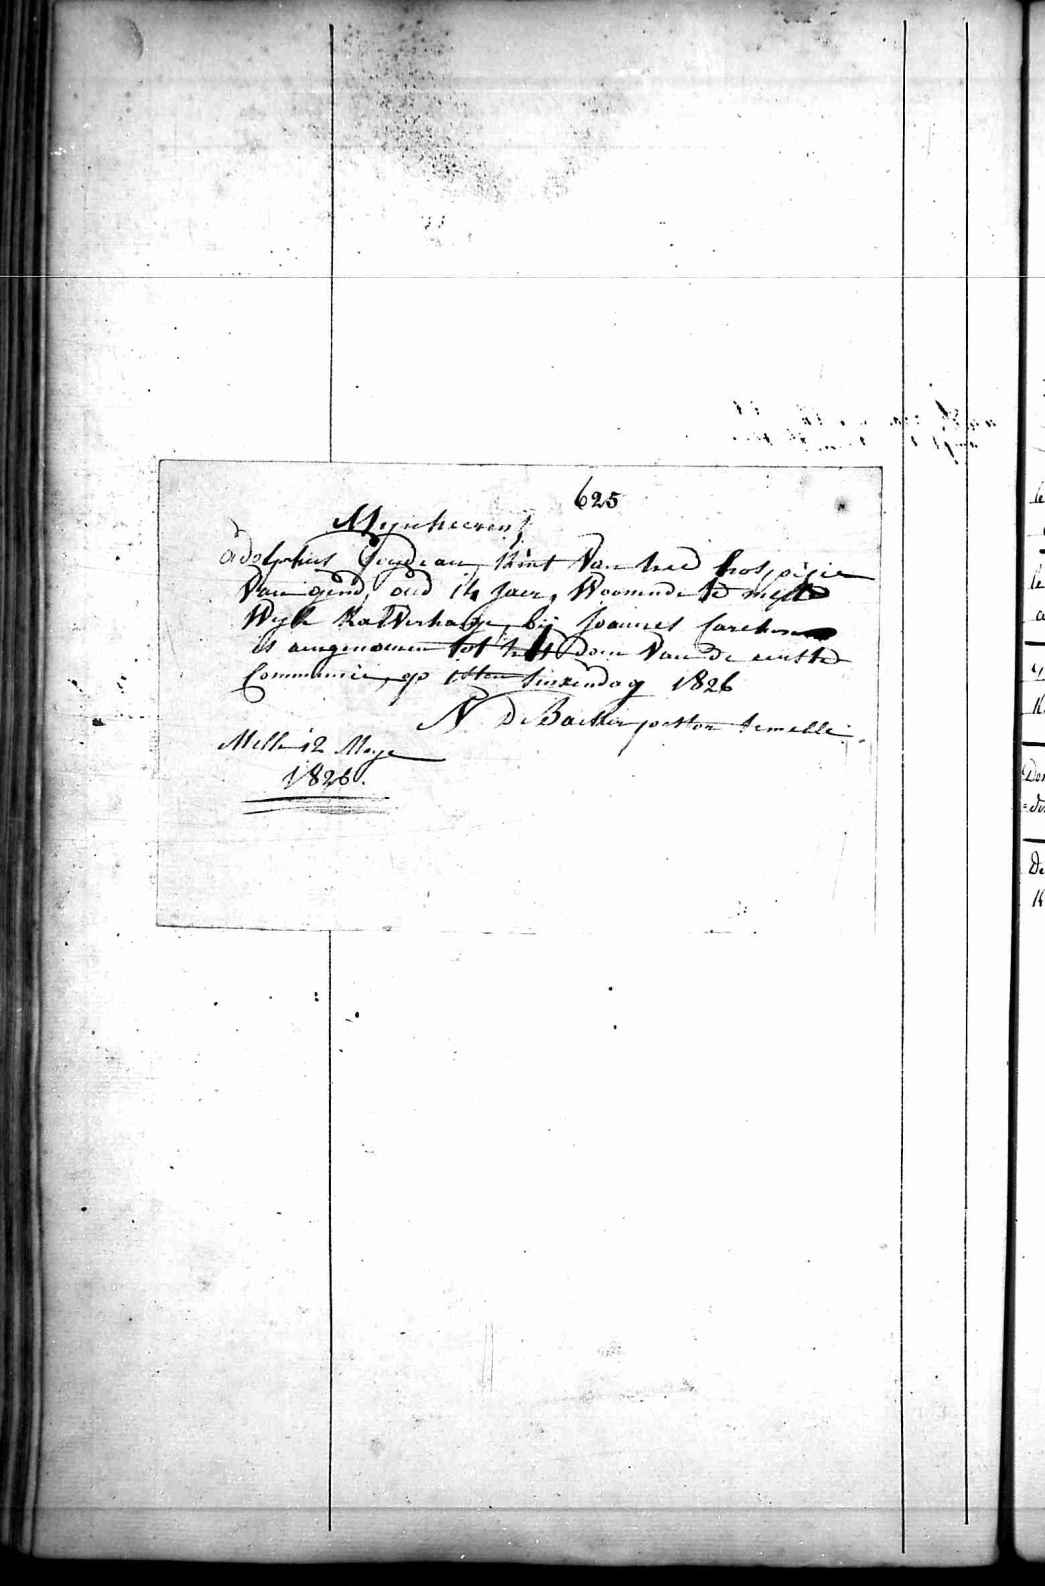 625
Mynheeren,
adolphus Goudeau, kint van hed hospicie
van gend, oud 14 jaer, Woonende te melle
Wyk Kalverhage, by Joannes
is aengenomen tot het doen van de eerste
Communie, op 1sten sinxendag 1826
N De Backer pastor te melle.
Melle 12 Meye
1826.